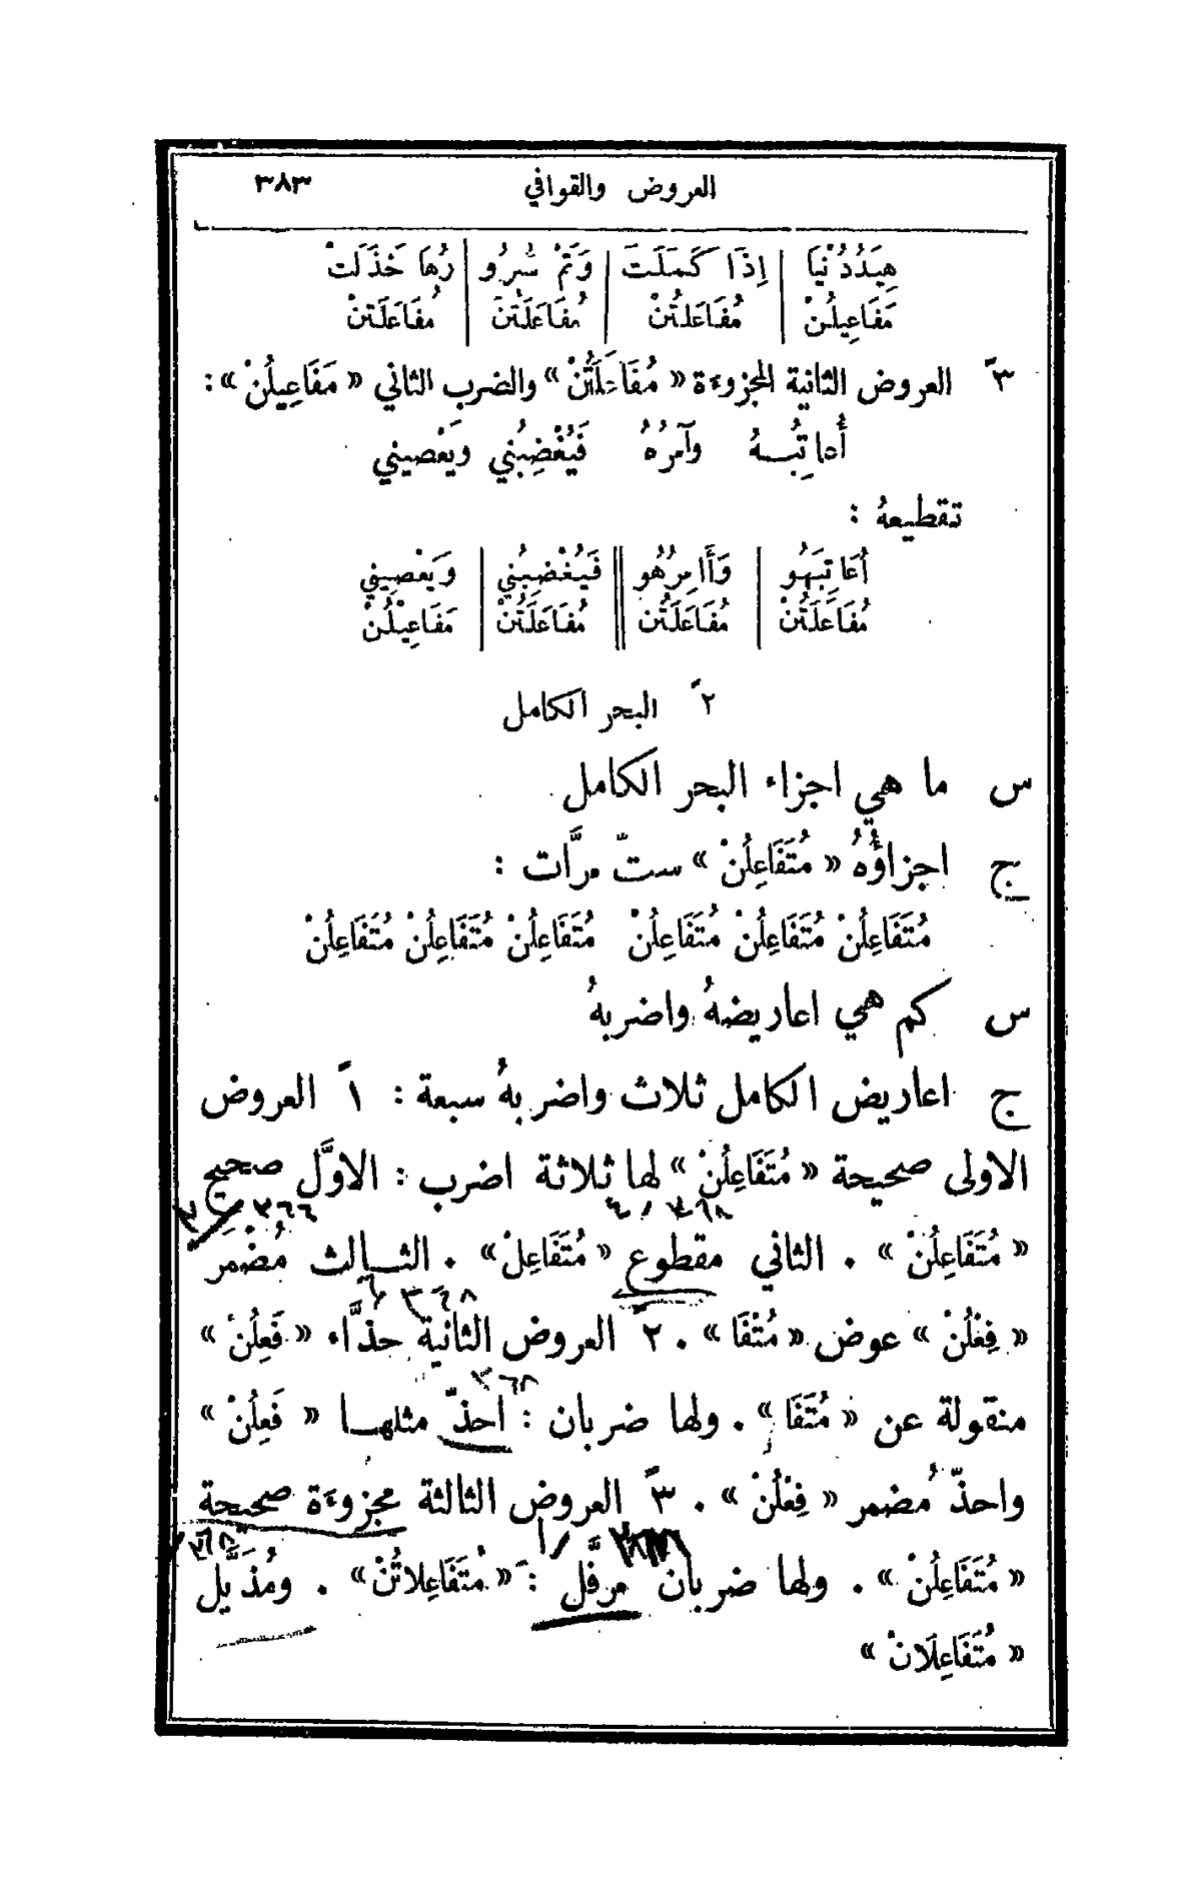 العروض والقوافي ٣٨٣
هِيَدُدُنْيَا | إِذَا كَمَلَتَ | وَتَمْ سُرُو | رُهَا خَذَلَتْ
مَفَاعِيلُنْ | مُفَاعَلَتُنْ | مُفَاعَلَتُنْ | مُفَاعَلَتُنْ
٣ً العروض الثانية المجزوءة « مُفَاعَلَتُنْ » والضرب الثاني « مَفَاعِيلُنْ » :
أُعاتِبُــهُ وآمرُهُ فَيُغْضِبُني ويَعْصيني
تقطيعهُ :
أُعَاتِبَهُو | وَأَامِرُهُو || فَيُغْضِبُنِي | وَيَعْصِينِي
مُفَاعَلَتُنْ | مُفَاعَلَتُن || مُفَاعَلَتُنْ | مَفَاعِيْلُنْ
٢ً البحر الكامل
س ما هي اجزاء البحر الكامل
ج اجزاؤُهُ « مُتَفَاعِلُنْ » ستّ مرَّات :
مُتَفَاعِلُنْ مُتَفَاعِلُنْ مُتَفَاعِلُنْ مُتَفَاعِلُنْ مُتَفَاعِلُنْ مُتَفَاعِلُنْ
س كم هي اعاريضهُ واضربهُ
ج اعاريض الكامل ثلاث واضربهُ سبعة : ١ً العروض
الاولى صحيحة « مُتَفَاعِلُنْ » لها ثلاثة اضرب : الاوَّل صحيح
« مُتَفَاعِلُنْ » . الثاني مقطوع « مُتَفَاعِلْ » . الثــالث مُضْمَر
« فِعْلُنْ » عوض « مُتْفَا » . ٢ً العروض الثانية حذَّاء « فَعِلُنْ »
منقولة عن « مُتَفَا » . ولها ضربان : احذّ مثلهــا « فَعِلُنْ »
واحذّ مُضمر « فِعْلُنْ » . ٣ً العروض الثالثة مجزوءَة صحيحة
« مُتَفَاعِلُنْ » . ولها ضربان مرفَّل : « مُتَفَاعِلاتُنْ » . ومُذَيَّل
« مُتَفَاعِلَانْ »